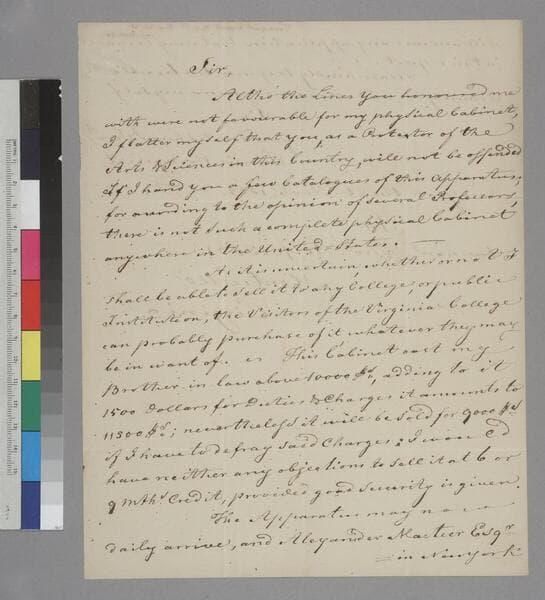 Sir,
Altho' the Lines You honoured me
with were not favourable for my physical Cabinet,
I flatter myself that you, as a Protector of the
Arts & Sciences in this Country, will not be offended
If I hand you a few Catalogues of this Apparatus;
for according to the opinion of several Professors,
there is not such a complete physical Cabinet
anywhere in the United-States. —
As it is uncertain, whether or not I
shall be able to sell it to any College, or public
Institution, the Visitors of the Virginia College
can probably purchase of it whatever they may
be in want of. This Cabinet cost my
Brother in law above 10000 $s, adding to it
1500 Dollars for Duties & Charges it amounts to
11500 $s; nevertheless it will be sold for 9000 $s
if I have to defray said Charges; I would
have neither any objections to sell it at 6 or
9 Mths Credit, provided good security is given.
The Apparatus may now
daily arrive, and Alexander Esqr
in New York